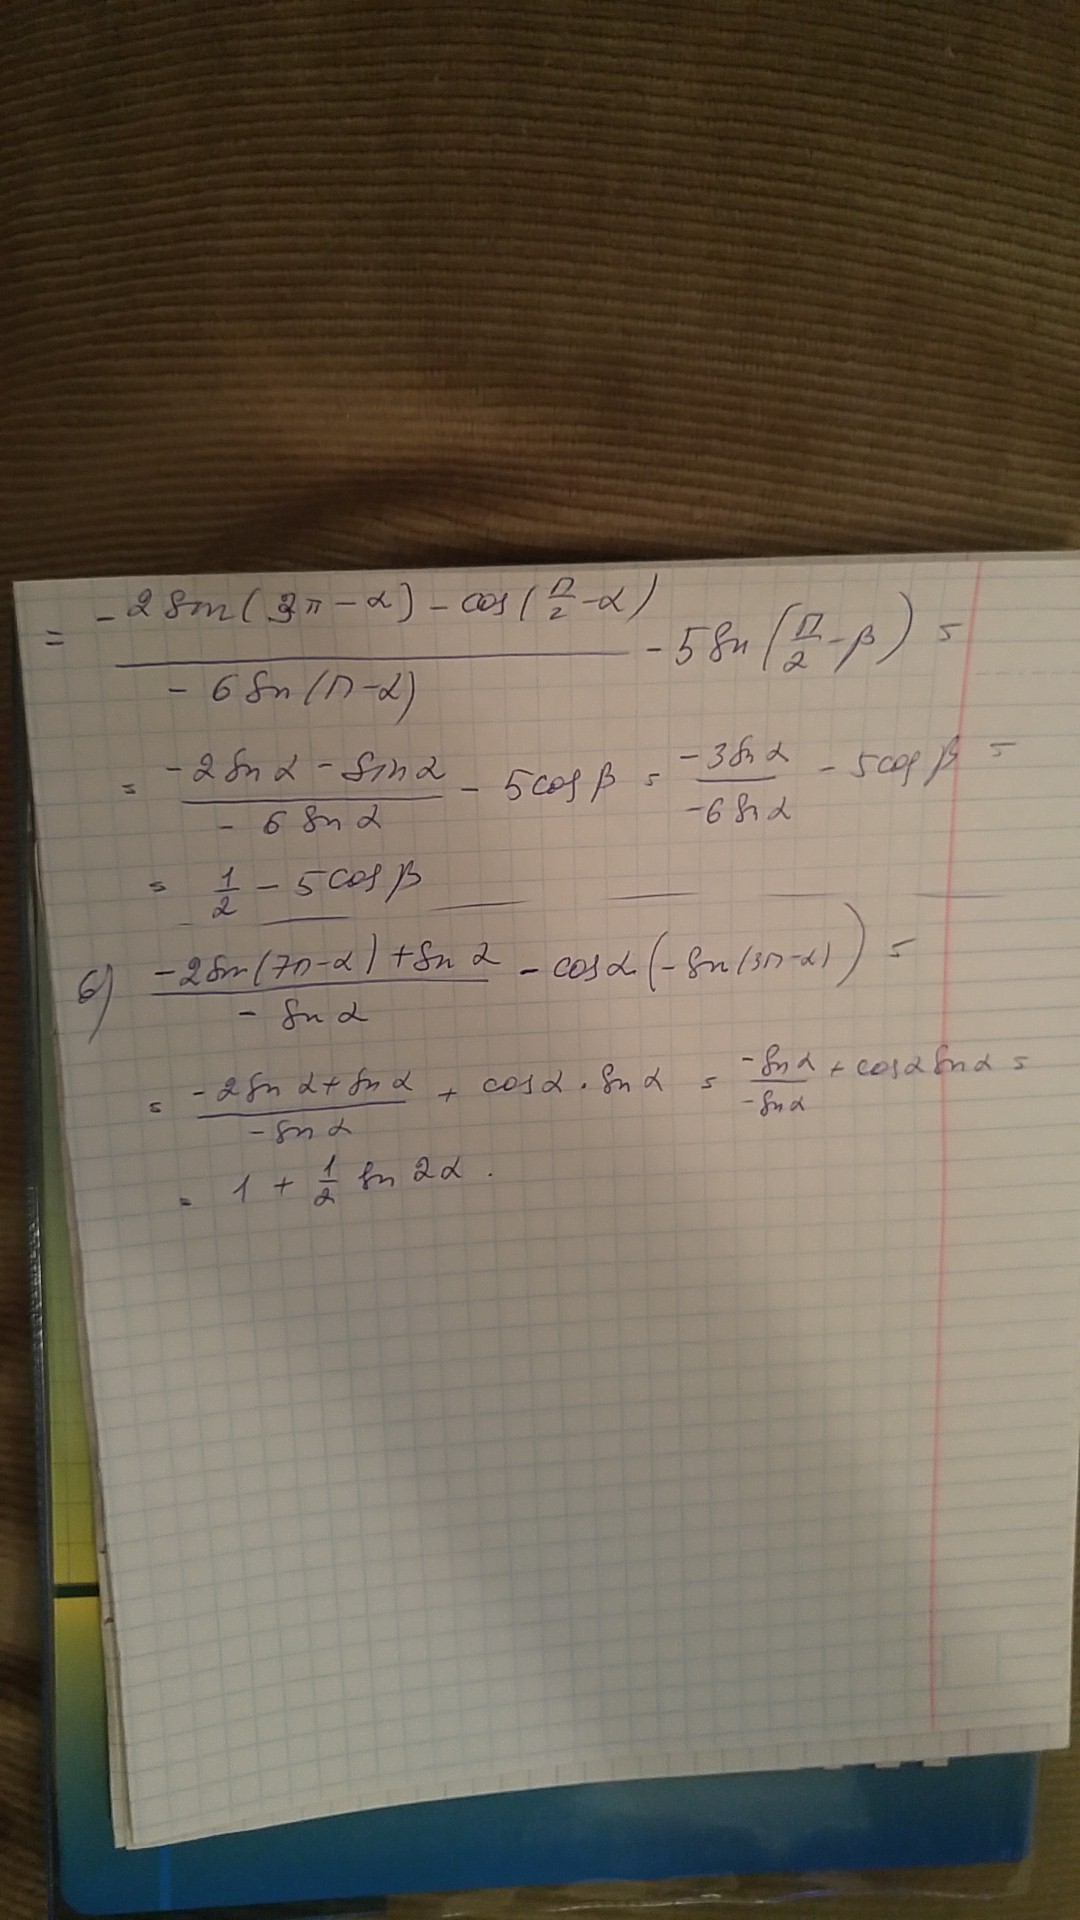 = (-2 sin(3π-α) - cos(π/2-α))/(-6 sin(π-α)) - 5 sin(π/2-β) =
= (-2 sin α - sin α)/(-6 sin α) - 5 cos β = (-3 sin α)/(-6 sin α) - 5 cos β =
= 1/2 - 5 cos β
б) (-2 sin(7π-α) + sin α)/(-sin α) - cos α (-sin(3π-α)) =
= (-2 sin α + sin α)/(-sin α) + cos α · sin α = (-sin α)/(-sin α) + cos α sin α =
= 1 + 1/2 sin 2α .